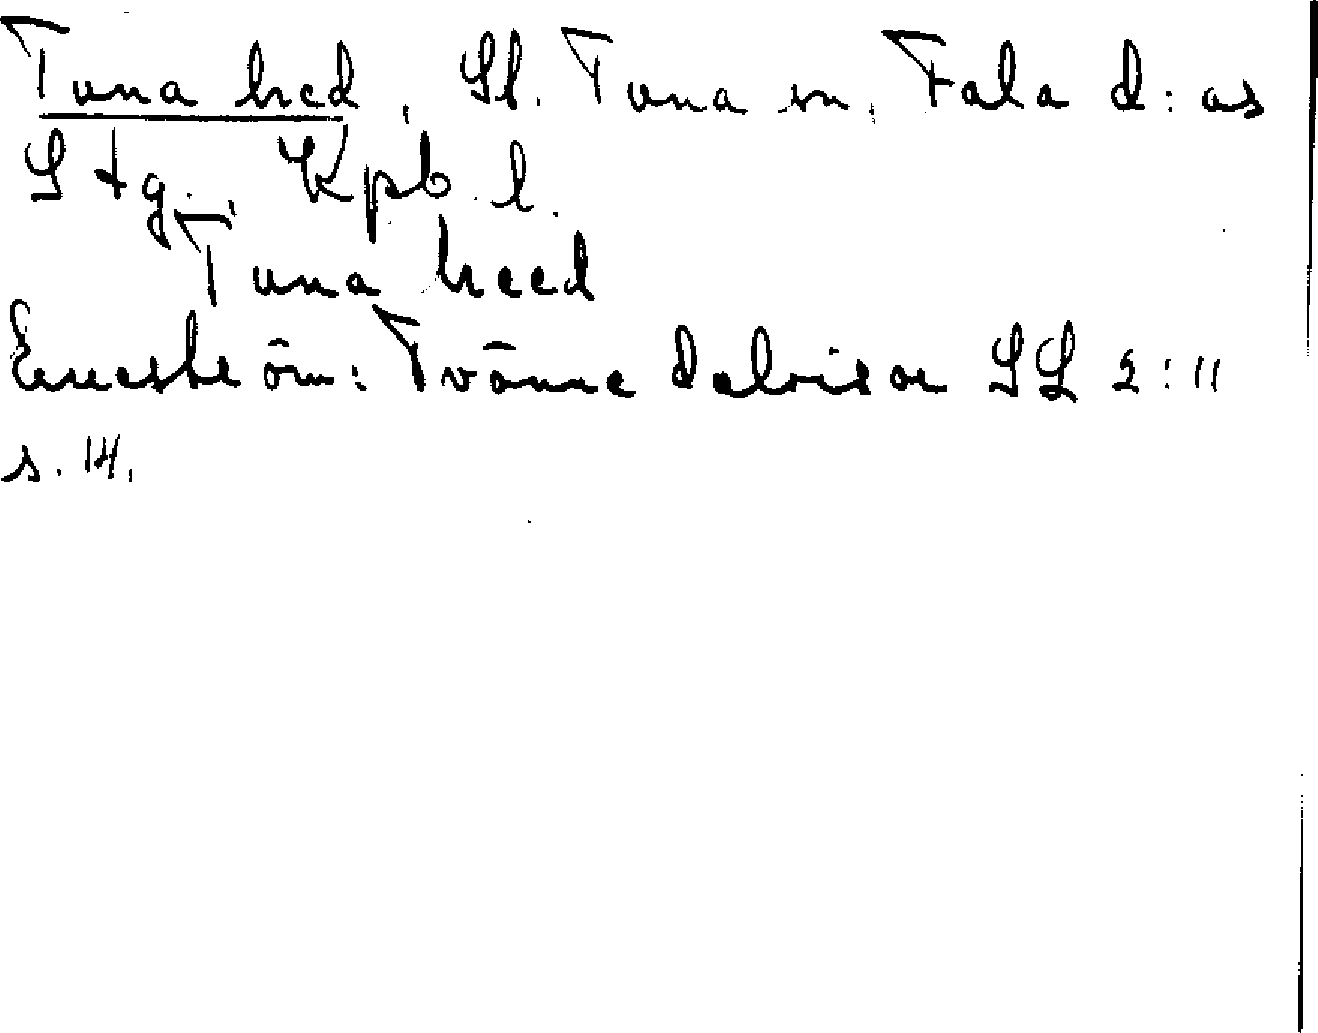 Tuna hed, St. Tuna sn, Fala d:as
Stg., Kpb. l.
Tuna heed
Eneström: Tvänne dalvisor SL 2:11
s. 14.